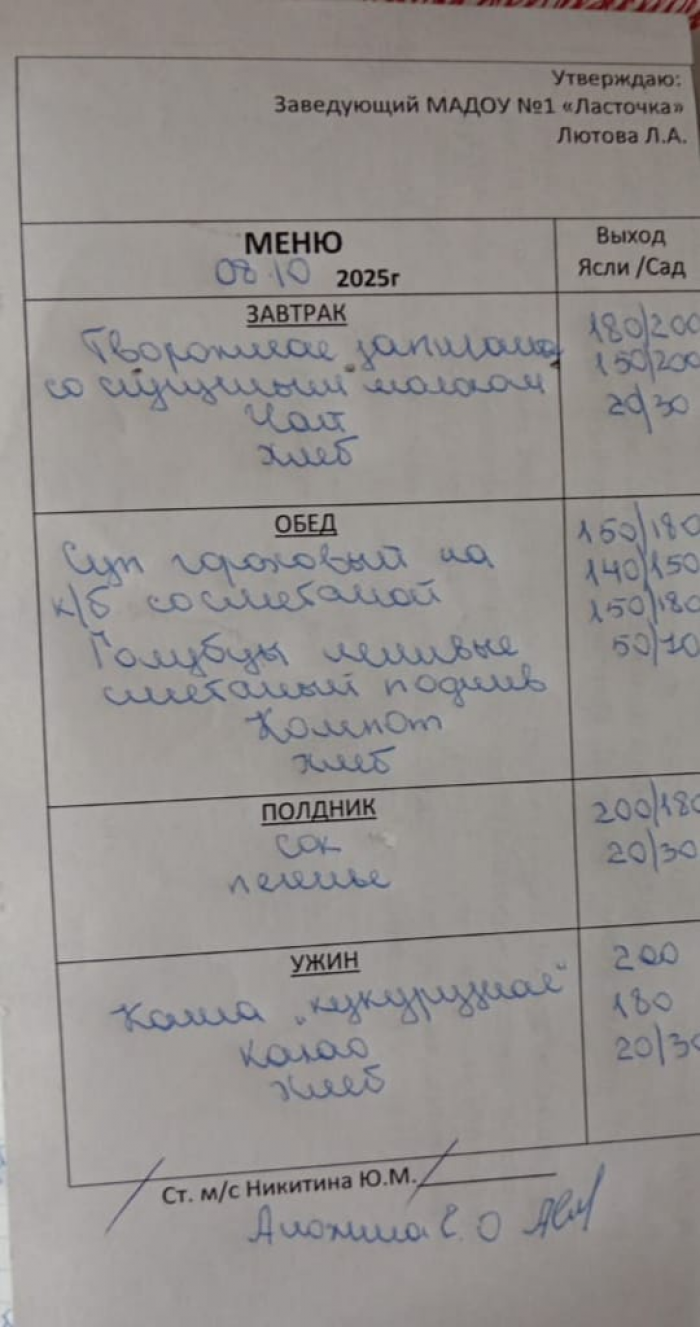 Утверждаю:
Заведующий МАДОУ №1 «Ласточка»
Лютова Л.А.
МЕНЮ
08.10 2025г
Выход
Ясли /Сад
ЗАВТРАК
Творожная запеканка
со сгущеным молоком
Чай
хлеб
180/200
150/200
20/30
ОБЕД
Суп гороховый на
к/б со сметаной
Голубцы ленивые
сметаный подлив
Компот
хлеб
150/180
140/150
150/180
50/70
ПОЛДНИК
сок
печенье
200/180
20/30
УЖИН
Каша „кукурузная"
какао
хлеб
200
180
20/30
Ст. м/с Никитина Ю.М.